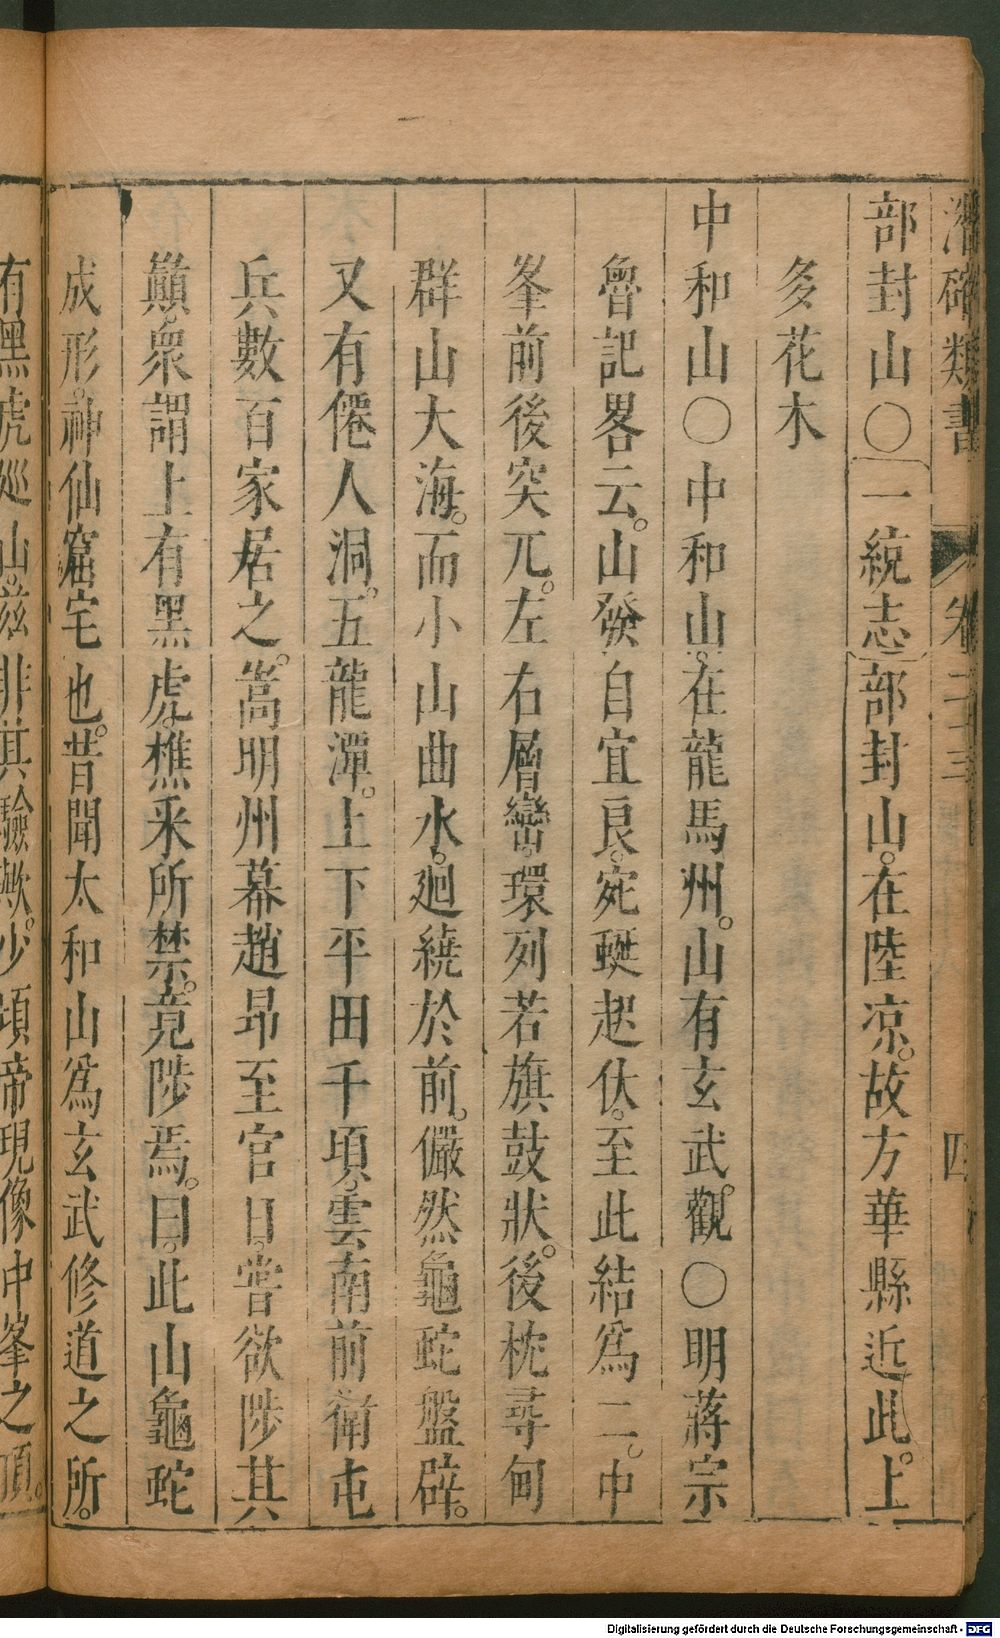 潛確類書 卷二十三 四
部封山○一統志部封山。在陸凉。故方華縣近此。上
多花木
中和山○中和山。在龍馬州。山有玄武觀○明蔣宗
魯記畧云。山發自宜良。宛蜒起伏。至此結爲二。中
峯前後突兀。左右層巒。環列若旗鼓狀。後枕尋甸
群山大海。而小山曲水。廻繞於前。儼然龜蛇盤辟。
又有僊人洞。五龍潭。上下平田千頃。雲南前衛屯
兵數百家居之。嵩明州幕趙昂至官日。嘗欲陟其
巔。衆謂上有黑虎。樵釆所禁。竟陟焉。曰。此山龜蛇
成形。神仙窟宅也。昔聞太和山爲玄武修道之所。
有黑虎巡山。兹非其驗歟。少頃帝現像中峯之頂。
Digitalisierung gefördert durch die Deutsche Forschungsgemeinschaft - DFG